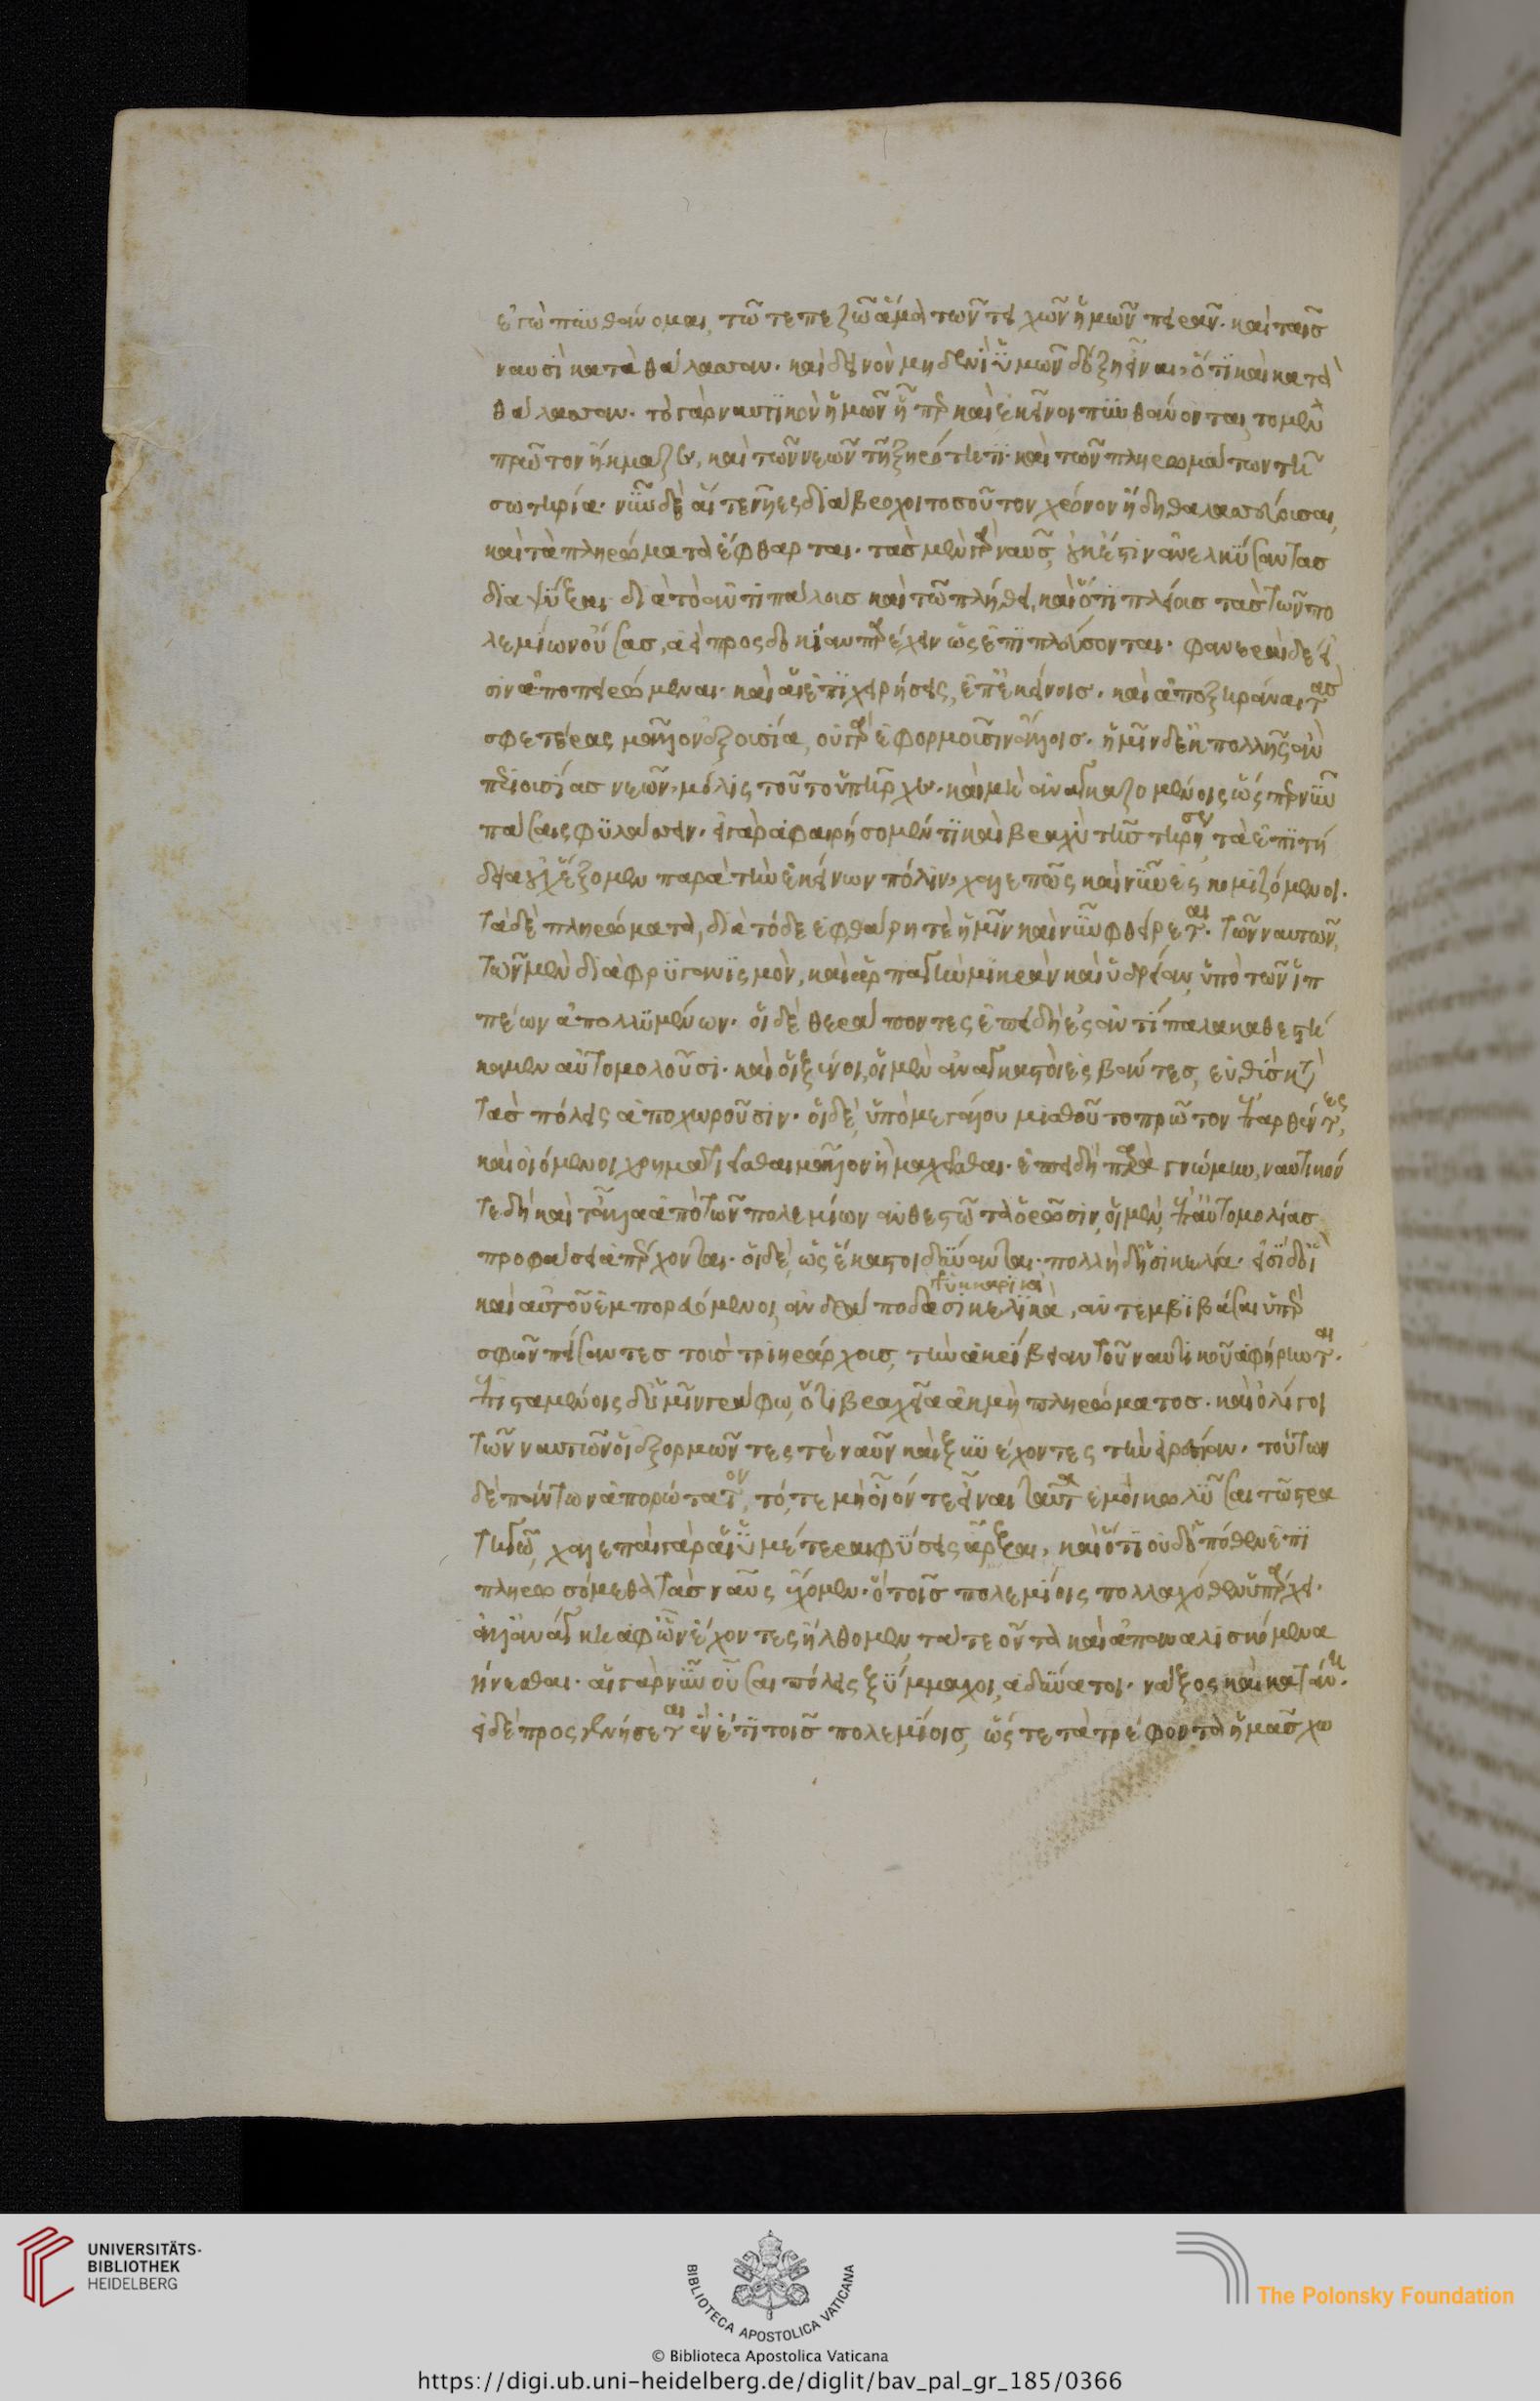 ἐγὼ πυνθάνομαι, τῶ τε πεζῶ ἅμα τῶν τειχῶν ἡμῶν πειρᾶν· καὶ ταῖσ
ναυσὶ κατὰ θάλασσαν. καὶ δεινὸν μηδενὶ ὑμῶν δόξη εἶναι, ὅτι καὶ κατὰ
θάλασσαν. τὸ γὰρ ναυτικὸν ἡμῶν ἧπερ καὶ ἐκεῖνοι πυνθάνονται, τὸ μὲν
πρῶτον ἤκμαζε, καὶ τῶν νεῶν τῆ ξηρότητι· καὶ τῶν πληρωμάτων τῆ
σωτηρία· νῦν δὲ αἵ τε νῆες διάβροχοι τοσοῦτον χρόνον ἤδη θαλασσεύουσαι,
καὶ τὰ πληρώματα ἔφθαρται. τὰσ μὲν γὰρ ναῦσ, οὐκ ἔστιν ἀνελκύσαντασ
διαψύξαι διὰ τὸ ἀντιπάλουσ καὶ τῶ πλήθει, καὶ ὅτι πλείουσ τὰσ τῶν πο
λεμίων οὔσασ, ἀεὶ προσδοκίαν παρέχειν ὡς ἐπιπλεύσονται. φανεραὶ δέ εἰ
σιν ἀποπειρώμεναι. καὶ αἱ ἐπιχειρήσεις, ἐπ' ἐκείνοισ. καὶ ἀποξηράναι τὰσ
σφετέρας μᾶλλον ἐξουσία, οὐ γὰρ ἐφορμοῦσιν ἄλλοισ. ἡμῖν δὲ ἐκ πολλῆς ἂν
περιουσίασ νεῶν, μόλις τοῦτο ὑπῆρχε. καὶ μὴ ἀναγκαζομένοις ὥσπερ νῦν
πάσαις φυλάσσειν. εἰ γὰρ ἀφαιρήσομέν τι καὶ βραχὺ τῆσ τηρήσεως, τὰ ἐπιτή
δεια οὐχ ἕξομεν παρὰ τὴν ἐκείνων πόλιν, χαλεπῶς καὶ νῦν ἐσκομιζόμενοι.
τὰ δὲ πληρώματα, διὰ τόδε ἐφθάρη τὲ ἡμῖν καὶ νῦν φθείρεται. τῶν ναυτῶν,
τῶν μὲν διὰ φρυγανισμὸν, καὶ ἁρπαγὴν μικρὰν καὶ ὑδρείαν, ὑπὸ τῶν ἱπ
πέων ἀπολλυμένων. οἱ δὲ θεράποντες ἐπειδὴ ἐς ἀντίπαλα καθεστή
καμεν αὐτομολοῦσι. καὶ οἱ ξένοι, οἱ μὲν ἀναγκαστοὶ ἐσβάντεσ, εὐθὺσ κατὰ
τὰσ πόλεις ἀποχωροῦσιν. οἱ δὲ, ὑπὸ μεγάλου μισθοῦ τὸ πρῶτον ἐπαρθέντες,
καὶ οἰόμενοι χρηματιεῖσθαι μᾶλλον ἢ μαχεῖσθαι. ἐπειδὴ παρὰ γνώμην, ναυτικόν
τε δὴ καὶ τἄλλα ἀπὸ τῶν πολεμίων ἀνθεστῶτα ὁρῶσιν, οἱ μὲν, ἐπ' αὐτομολίασ
προφάσει ἀπέρχονται. οἱ δὲ, ὡς ἕκαστοι δύνανται. πολλὴ δ' ἡ σικελία. εἰσὶ δ' οἳ
καὶ αὐτοῦ ἐμπορευόμενοι, ἀνδράποδα σικελικὰ, ἀντεμβιβάσαι ὑπὲρ
ὑκκαρικὰ
σφῶν πείσαντεσ τοὺσ τριηράρχουσ, τὴν ἀκρίβειαν τοῦ ναυτικοῦ ἀφήρηνται.
ἐπισταμένοις δ' ὑμῖν γράφω, ὅτι βραχεῖα ἀκμὴ πληρώματοσ. καὶ ὀλίγοι
τῶν ναυτῶν οἱ ἐξορμῶντες τὲ ναῦν καὶ ξυνέχοντες τὴν εἰρεσίαν. τούτων
δὲ πάντων ἀπορώτατον, τό, τε μὴ οἷόν τε εἶναι ταῦτα ἐμοὶ κωλῦσαι τῶ στρα
τηγῶ, χαλεπαὶ γὰρ αἱ ὑμέτεραι φύσεις ἄρξαι, καὶ ὅτι οὐδ' ὁπόθεν ἐπι
πληρωσόμεθα τὰσ ναῦς ἔχομεν. ὃ τοῖσ πολεμίοις πολλαχόθεν ὑπάρχει.
ἀλλ' ἀνάγκη ἀφ' ὧν ἔχοντες ἤλθομεν τά τε ὄντα καὶ ἀπαναλισκόμενα
γίνεσθαι. αἱ γὰρ νῦν οὖσαι πόλεις ξύμμαχοι, ἀδύνατοι. νάξος καὶ κατάνη.
εἰ δὲ προσγενήσεται ἓν ἔτι τοῖσ πολεμίοισ, ὥστε τὰ τρέφοντα ἡμᾶσ χω
UNIVERSITÄTS-
BIBLIOTHEK
HEIDELBERG
BIBLIOTECA APOSTOLICA VATICANA
The Polonsky Foundation
© Biblioteca Apostolica Vaticana
https://digi.ub.uni-heidelberg.de/diglit/bav_pal_gr_185/0366